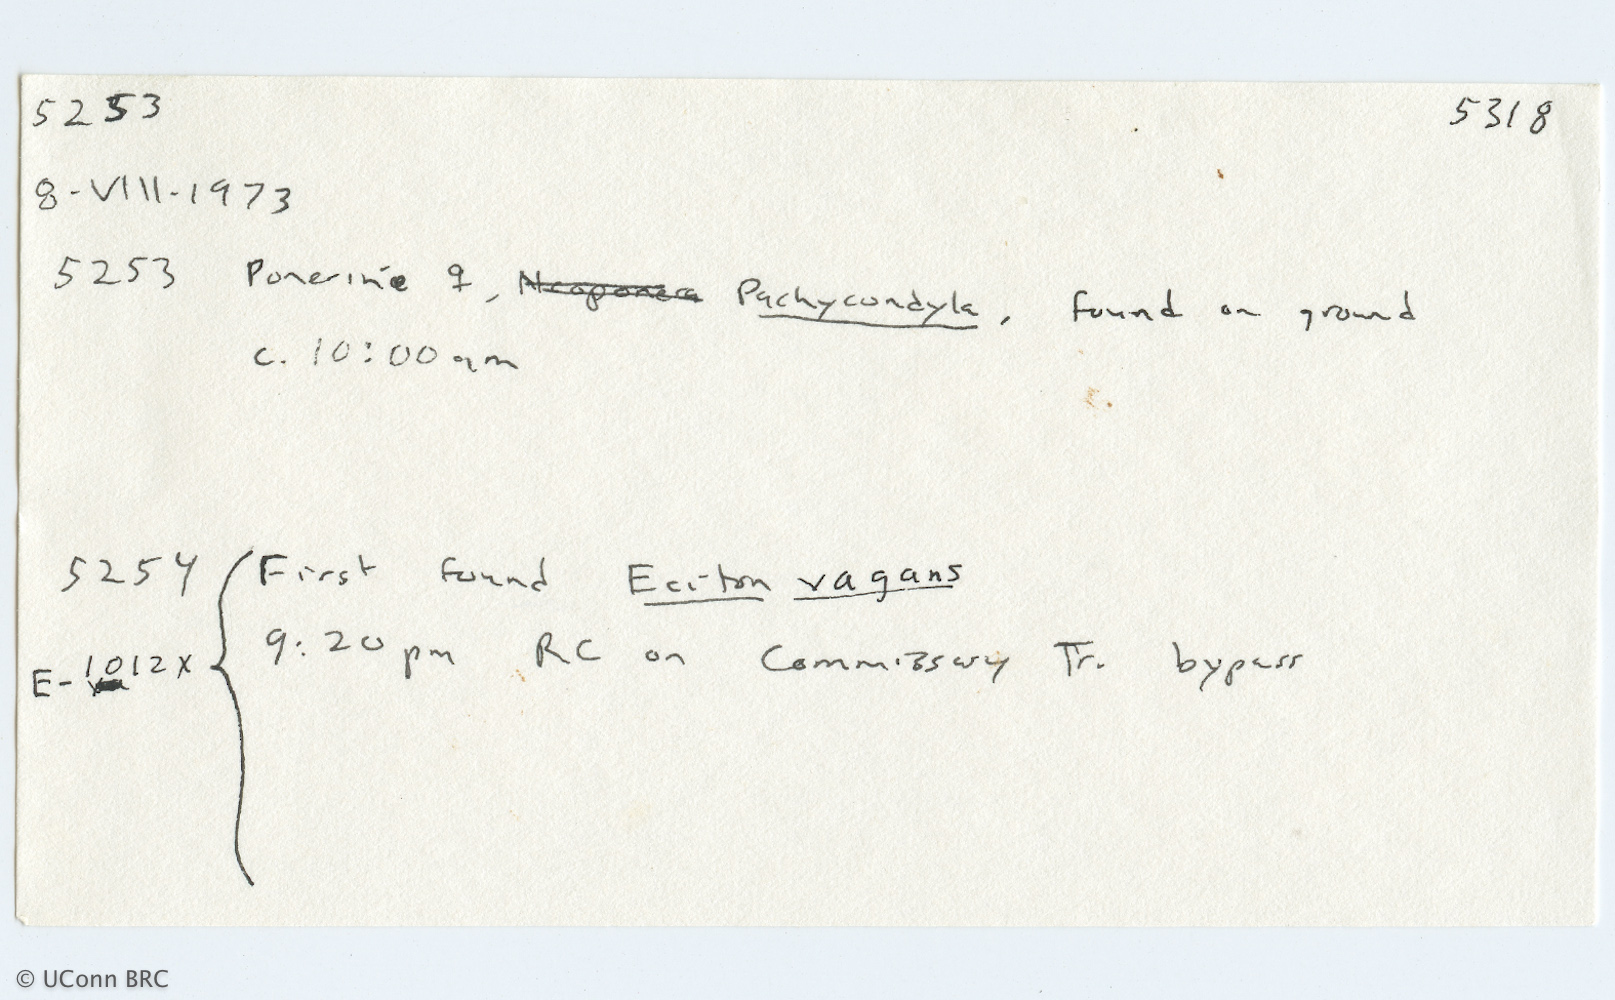 5253 5318
8-VIII-1973
5253 Ponerine ♀, Neoponera Pachycondyla, found on ground
c. 10:00 am
5254 First found Eciton vagans
9:20 pm RC on Commissary Tr. bypass
E-1012X
© UConn BRC